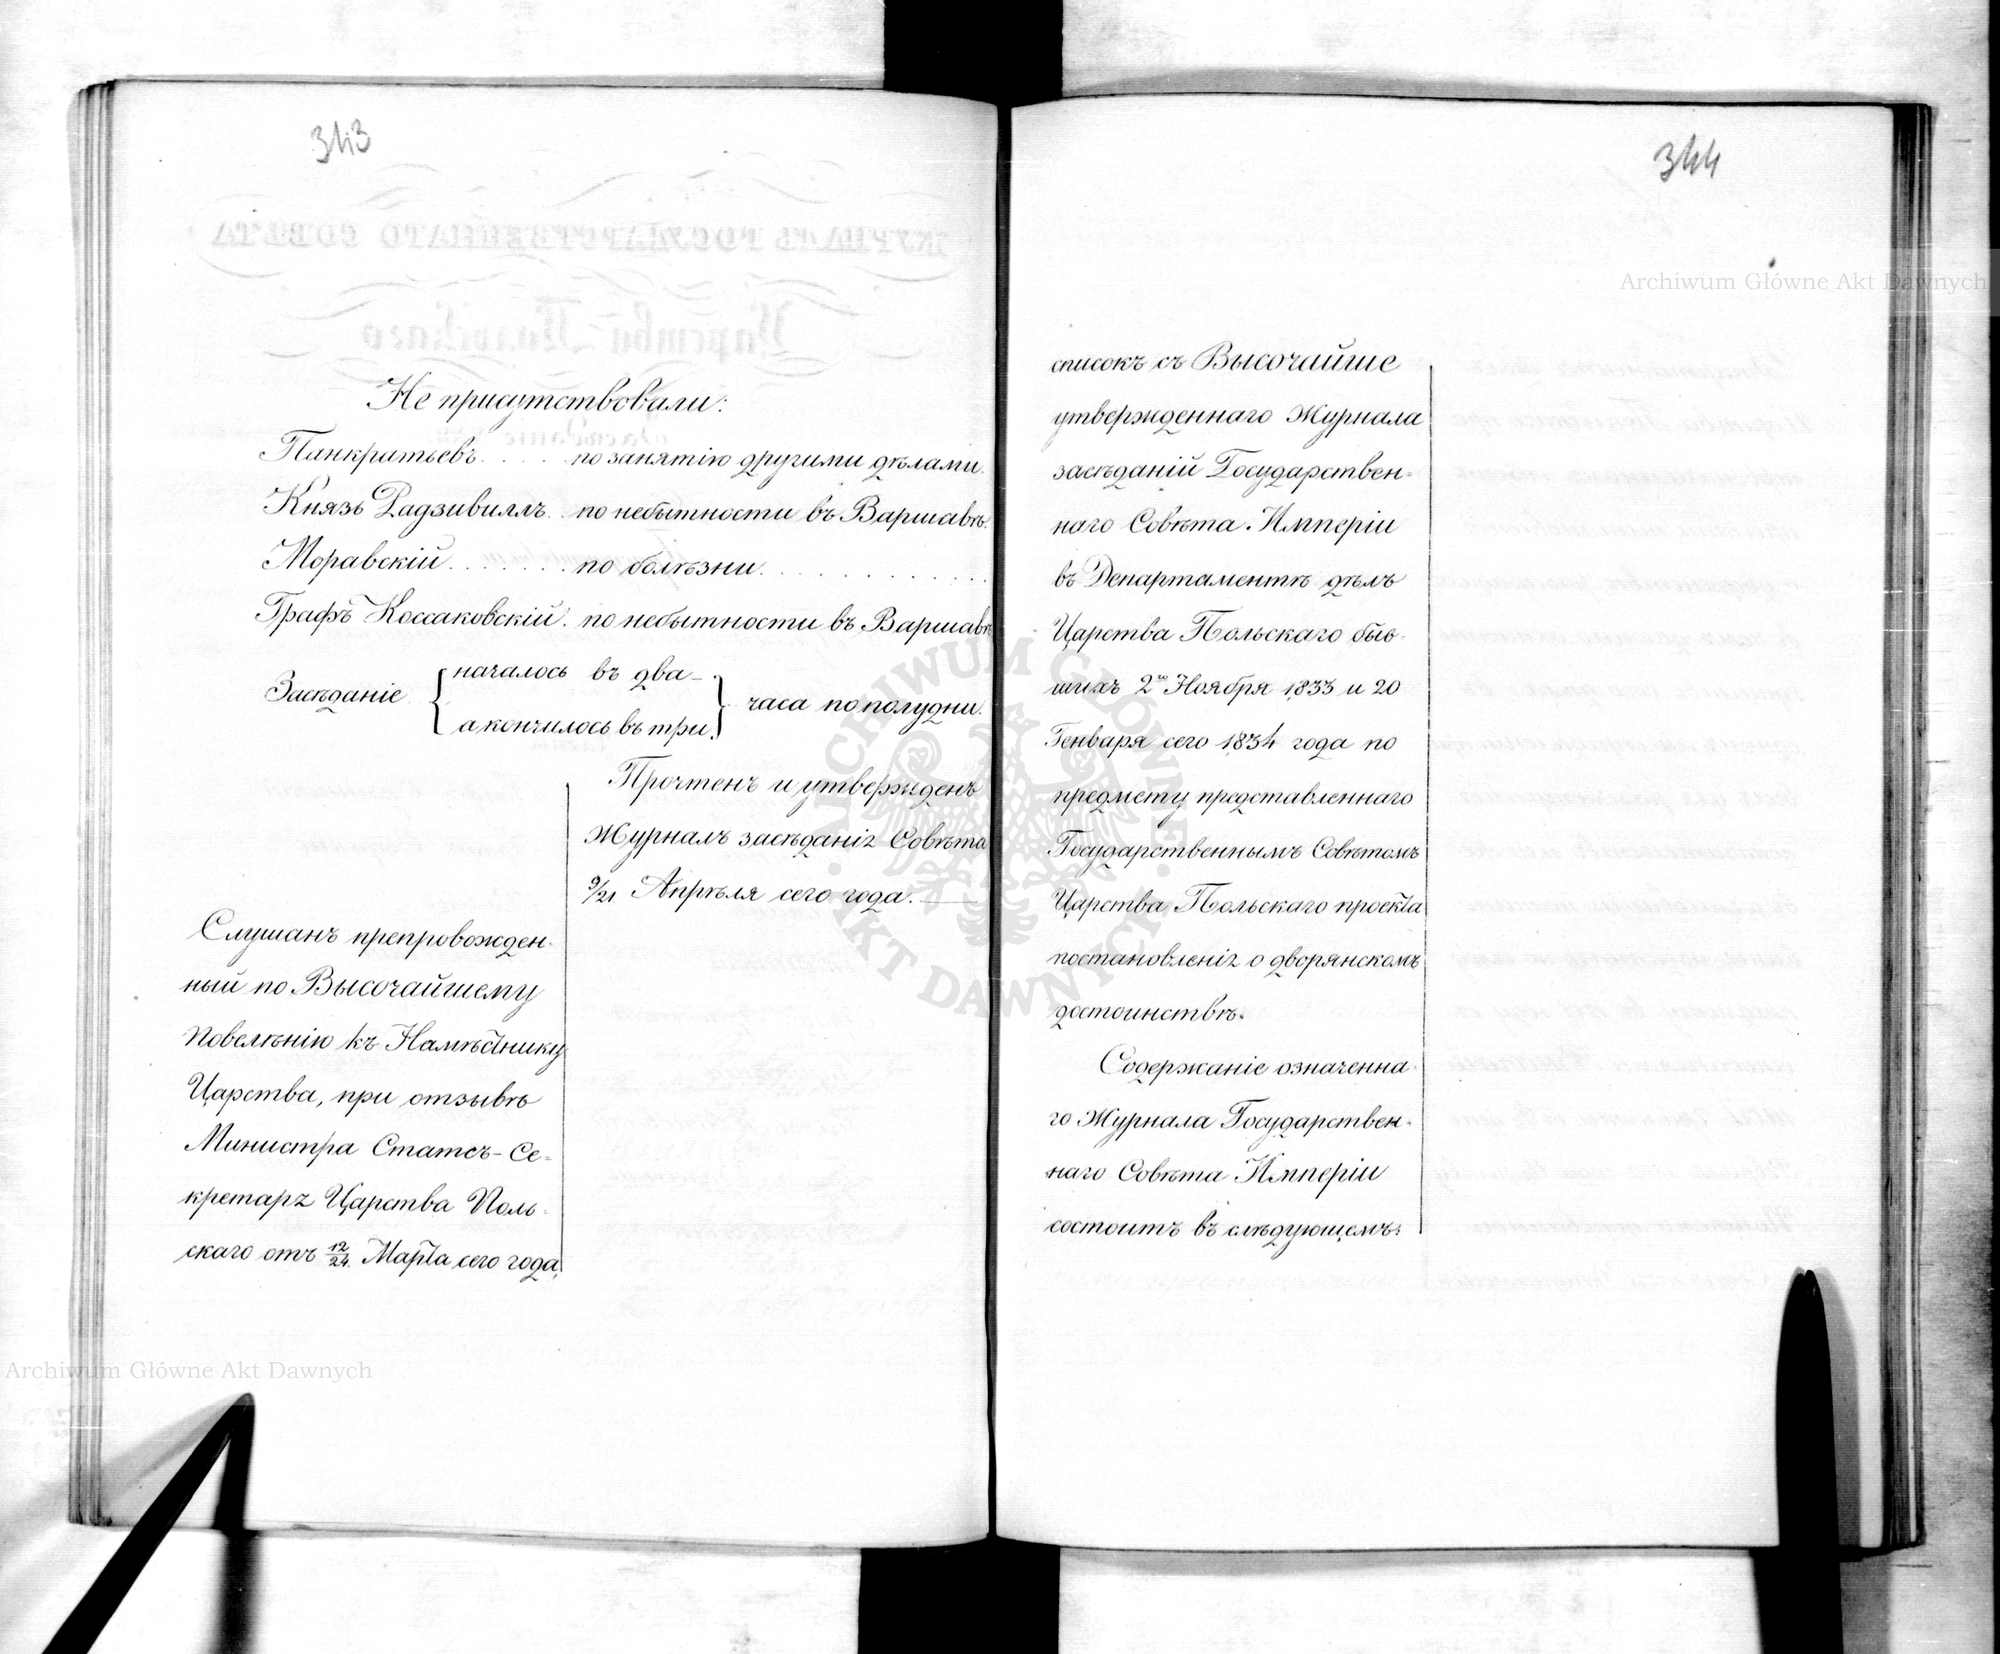 343
Не присутствовали:
Панкратьевъ . . . . по занятію другими дѣлами.
Князь Радзивиллъ . . по небытности въ Варшавѣ.
Моравскій . . . . . . . по болѣзни . . . . . . . . . .
Графъ Коссаковскій . по небытности въ Варшавѣ
Засѣданіе { началось въ два
а кончилось въ три } часа по полудни.
Прочтенъ и утвержденъ
Журналъ засѣданія Совѣта
9/21 Апрѣля сего года.
Слушанъ препровожден-
ный по Высочайшему
Повелѣнію къ Намѣстнику
Царства, при отзывѣ
Министра Статсъ-Се-
кретаря Царства Поль-
скаго отъ 12/24 Марта сего года,
344
списокъ съ Высочайше
утвержденнаго Журнала
засѣданій Государствен-
наго Совѣта Имперіи
въ Департаментѣ дѣлъ
Царства Польскаго быв-
шихъ 2го Ноября 1833 и 20
Генваря сего 1834 года по
предмету представленнаго
Государственнымъ Совѣтомъ
Царства Польскаго проекта
постановленія о дворянскомъ
достоинствѣ.
Содержаніе означенна-
го Журнала Государствен-
наго Совѣта Имперіи
состоитъ въ слѣдующемъ:
Archiwum Główne Akt Dawnych
Archiwum Główne Akt Dawnych
ARCHIWUM GŁÓWNE AKT DAWNYCH